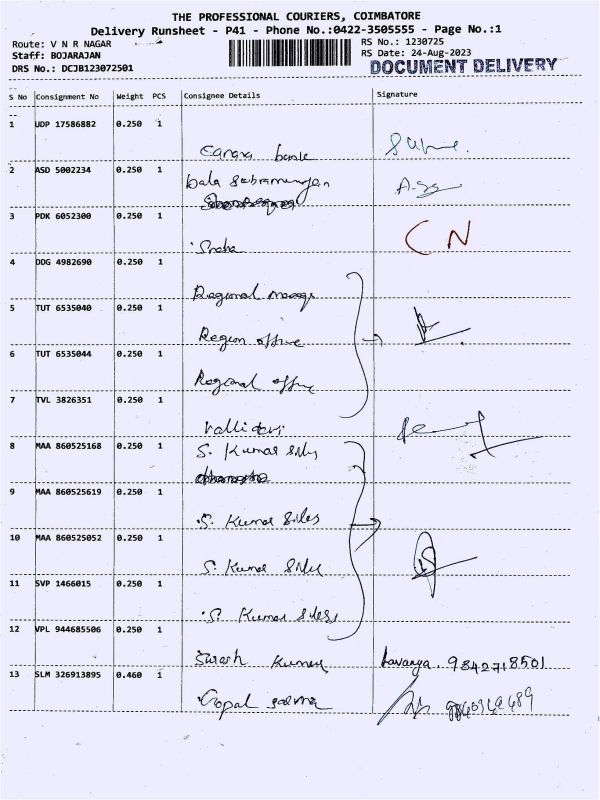 THE PROFESSIONAL COURIERS, COIMBATORE
Delivery Runsheet - P41 - Phone No.:0422-3505555 - Page No.:1
Route: V N R NAGAR
RS No.: 1230725
Staff: BOJARAJAN
RS Date: 24-Aug-2023
DRS No.: DCJB123072501
DOCUMENT DELIVERY
S No Consignment No Weight PCS Consignee Details Signature
1 UDP 17586882 0.250 1
Canara bank
2 ASD 5002234 0.250 1
bala Subramaniyan
3 PDK 6052300 0.250 1
C N
4 DDG 4982690 0.250 1
Regional manage
5 TUT 6535040 0.250 1
Region office
6 TUT 6535044 0.250 1
Regional office
7 TVL 3826351 0.250 1
Vallidevi
8 MAA 860525168 0.250 1
S. Kumar
9 MAA 860525619 0.250 1
S. Kumar Siles
10 MAA 860525052 0.250 1
S. Kumar
11 SVP 1466015 0.250 1
S. Kumar
12 VPL 944685506 0.250 1
Suresh Kumar Lavanya. 9842718501
13 SLM 326913895 0.460 1
Gopal